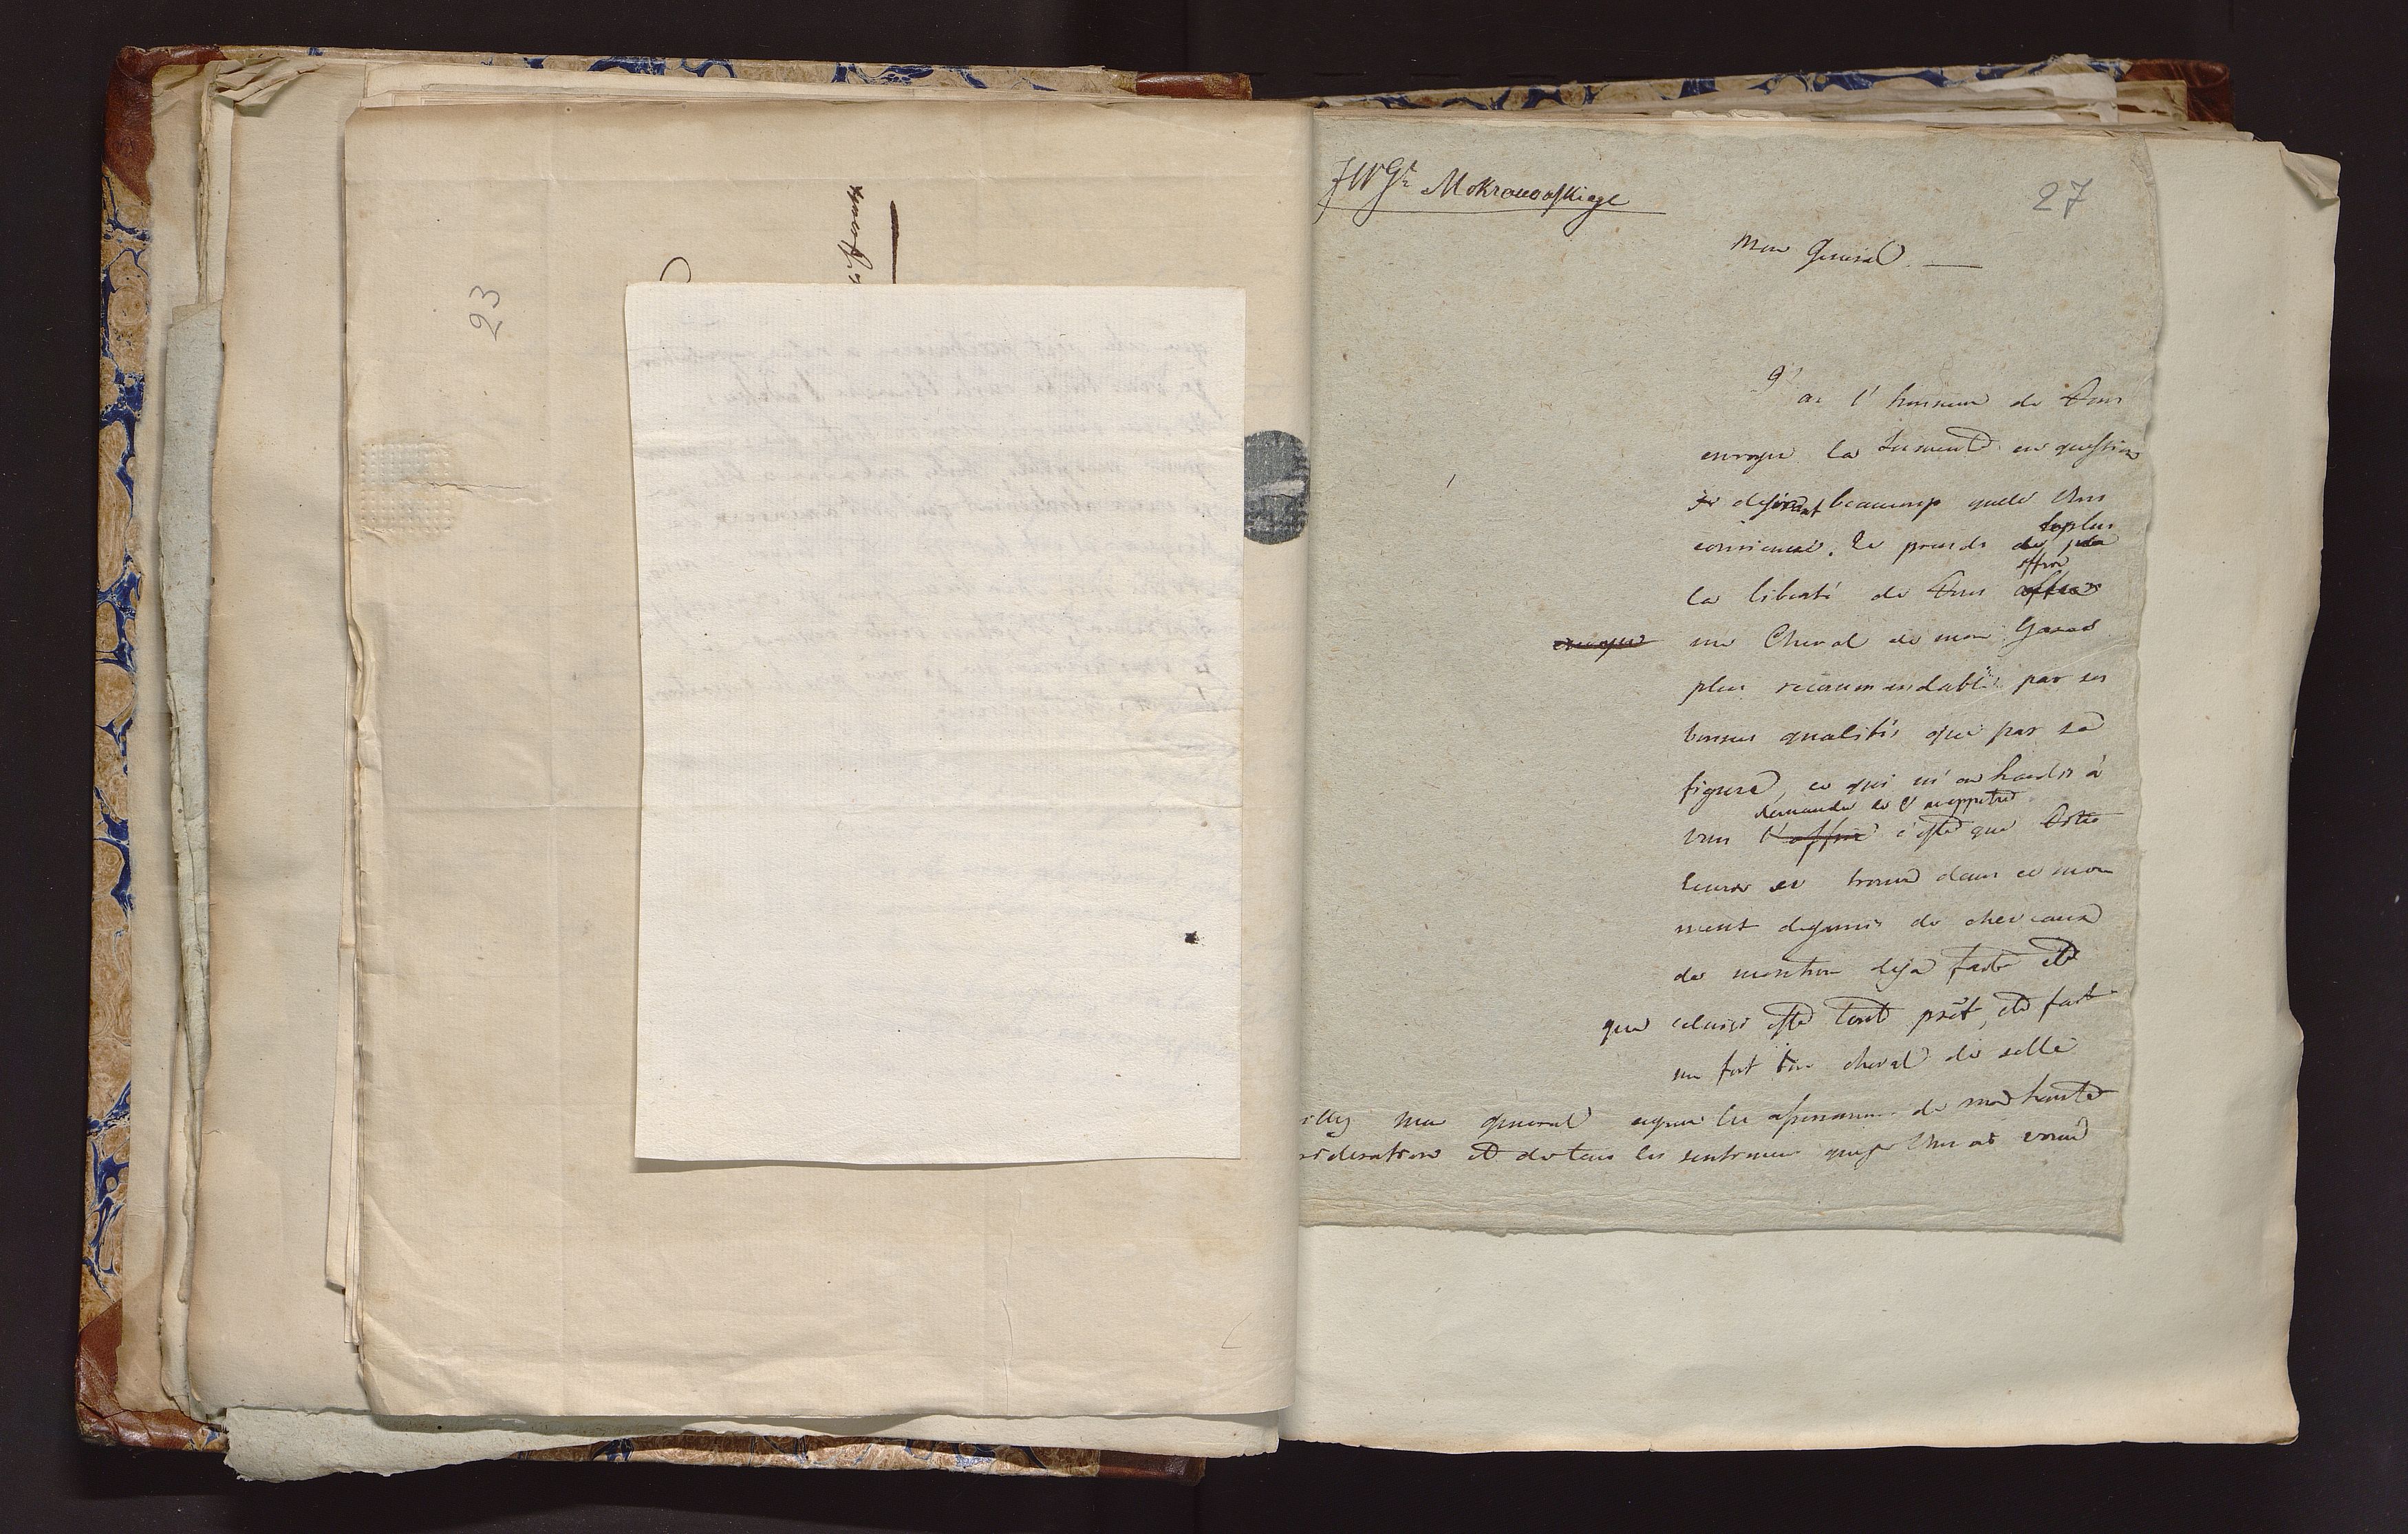 23
JW Gł Mokronoskiego
27
Mon General. —
J'ai l' honneur de Vous
envoyer la Jument en question
je desirant beaucoup quele Vous
convienne. Je prends de plu
la plus
la liberté de Vous
offrir
un Cheval de mon
plus recommendable par ses
bonnes qualités que par sa
figure, ce qui m' enhardis à
demander de l' acceptere
vous l' offrir c'este que Votre
se trouve dans ce mo
ment degarnis de chevaux
de monture deja faite ete
que celuici este tout prêt, ete fait
un fort bon cheval de selle
mon general agreer les assurances de ma haute
sideration et de tous les sentimens que je Vous ai voué